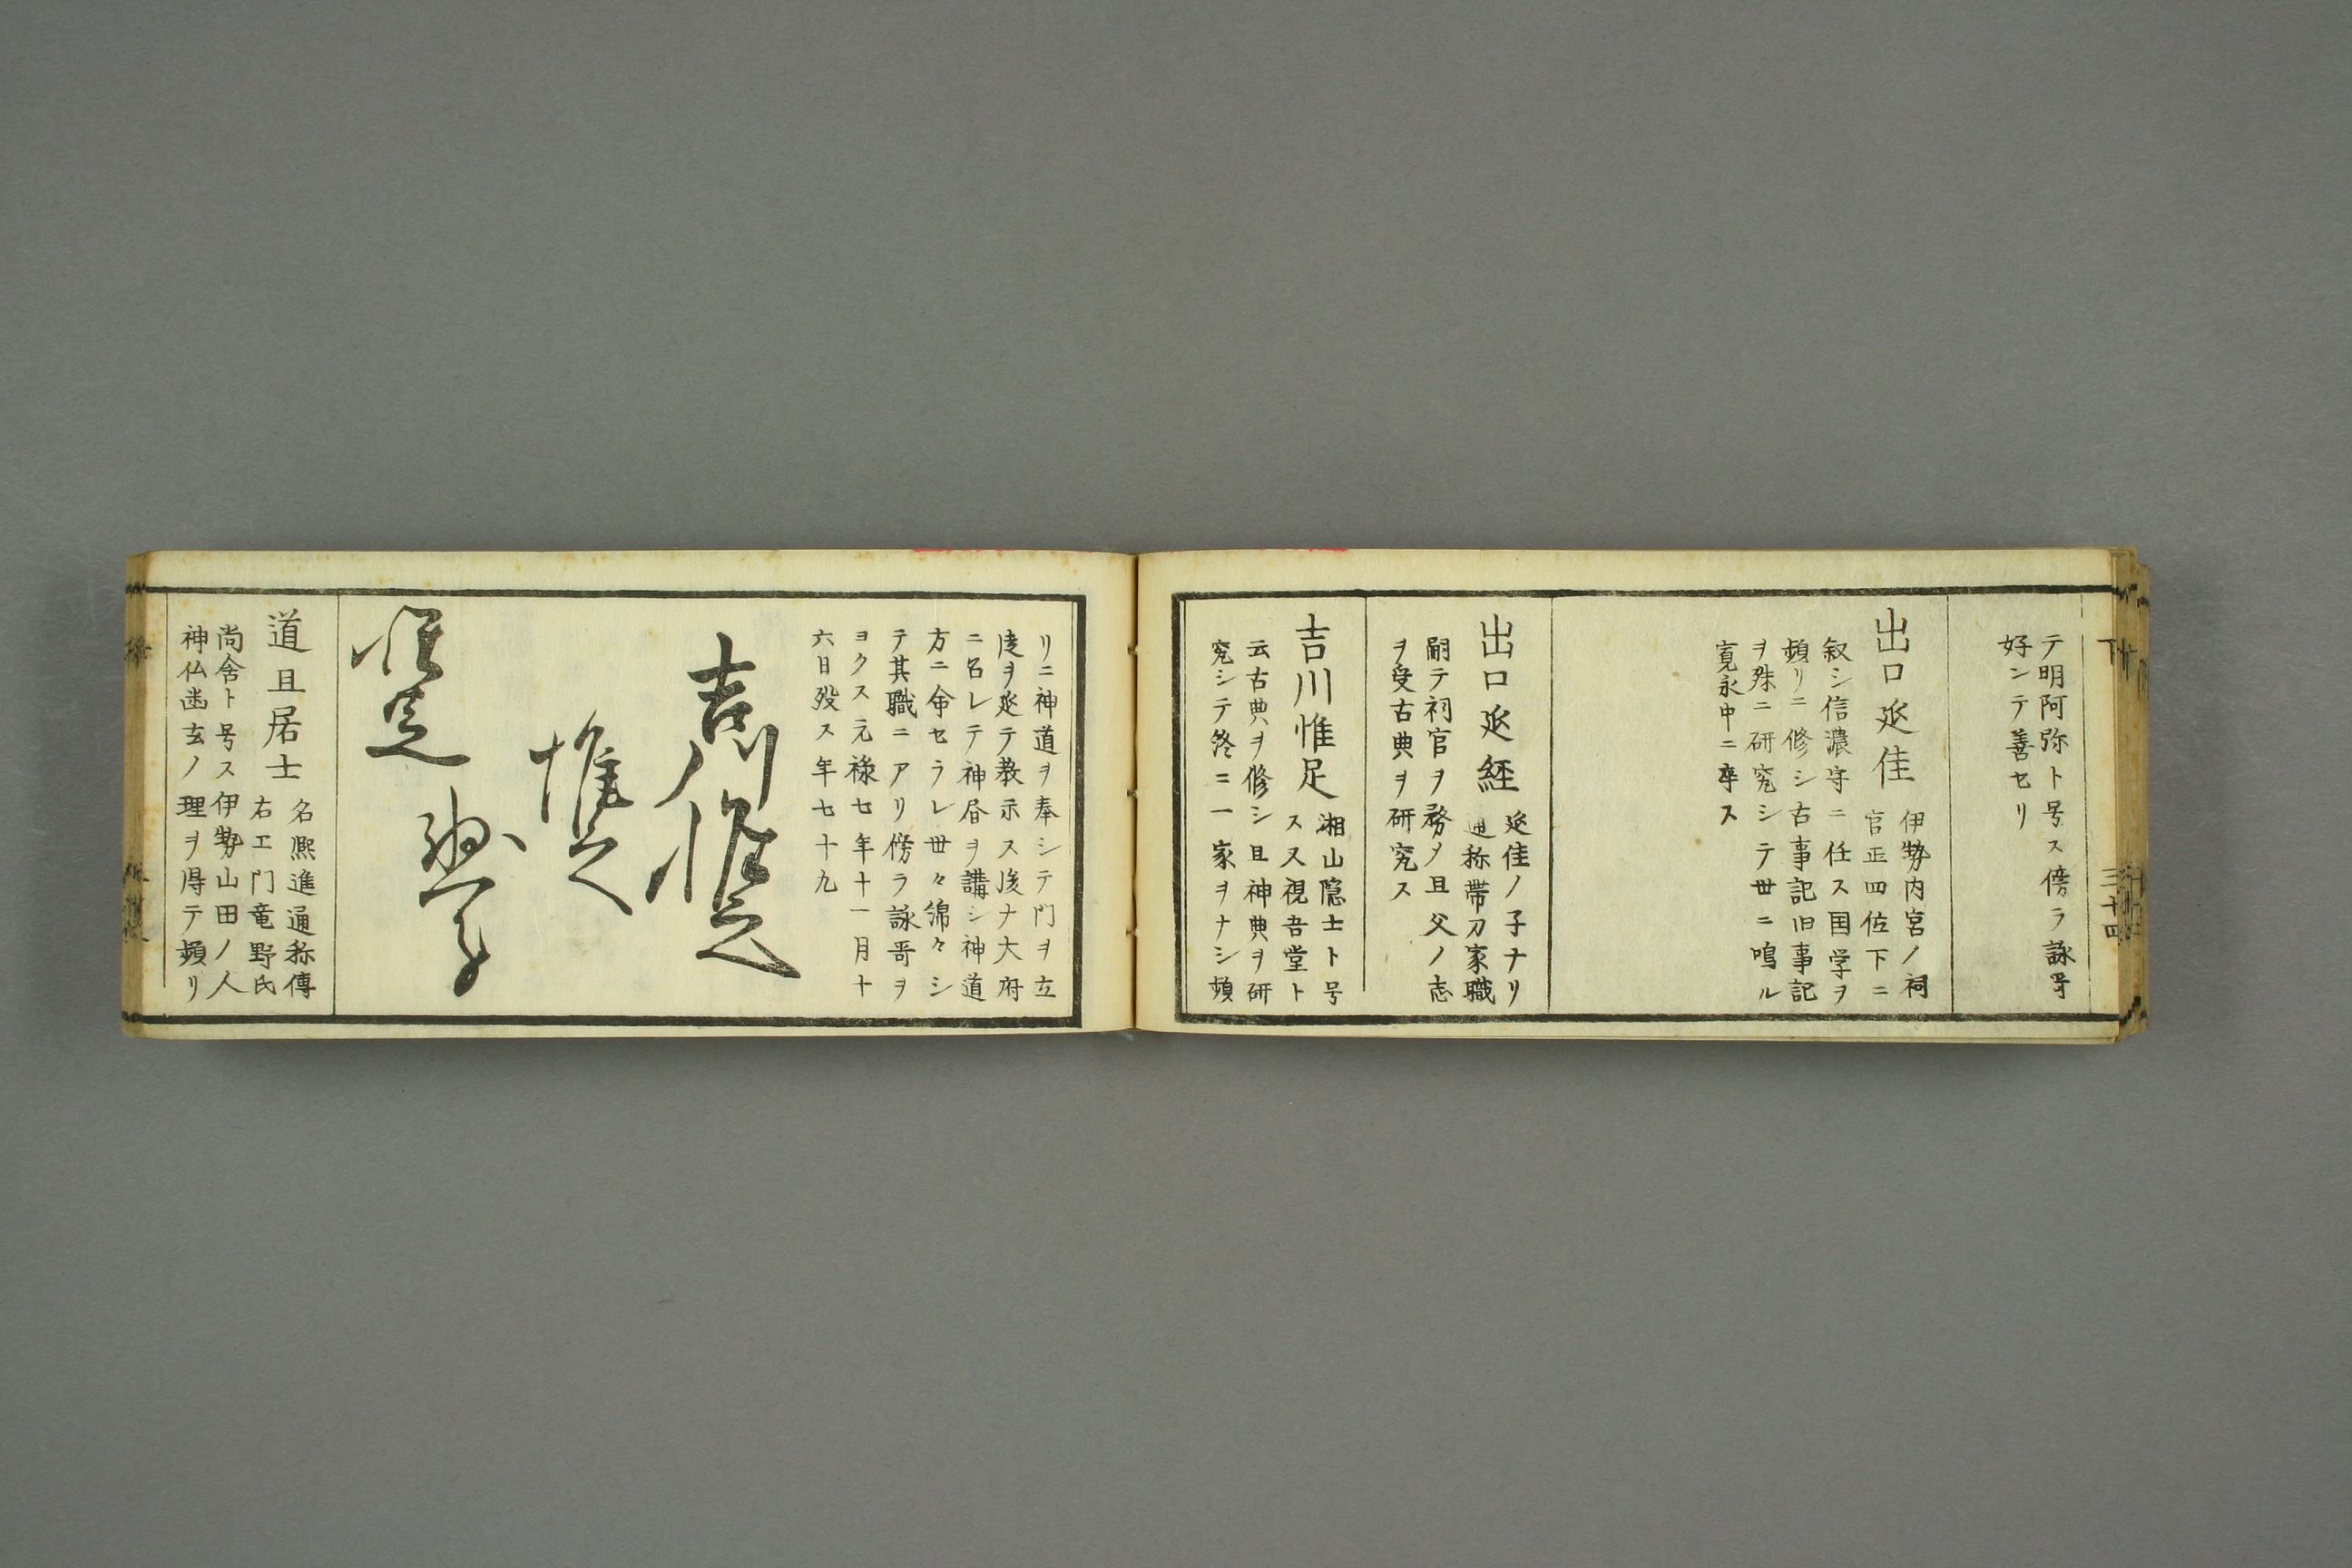 テ明阿弥ト号ス傍ラ詠哥
好ンテ善セリ
出口延佳
伊勢内宮ノ祠
官正四佐下ニ
叙シ信濃守ニ任ス国学ヲ
頻リニ修シ古事記旧事記
ヲ殊ニ研究シテ世ニ鳴ル
寛永中ニ卒ス
出口延経
延佳ノ子ナリ
通称帯刀家職
嗣テ祠官ヲ務メ且父ノ志
ヲ受古典ヲ研究ス
吉川惟足
湘山隠士ト号
ス又視吾堂ト
云古典ヲ修シ且神典ヲ研
究シテ終ニ一家ヲナシ頻
リニ神道ヲ奉シテ門ヲ立
徒ヲ延テ教示ス後ナ大府
ニ名レテ神昏ヲ講シ神道
方ニ命セラレ世々綿々シ
テ其職ニアリ傍ラ詠哥ヲ
ヨクス元禄七年十一月十
六日歿ス年七十九
吉川惟足
惟足
惟足
道且居士
名熈進通称傳
右エ門竜野氏
尚舎ト号ス伊勢山田ノ人
神仏幽玄ノ理ヲ得テ頻リ